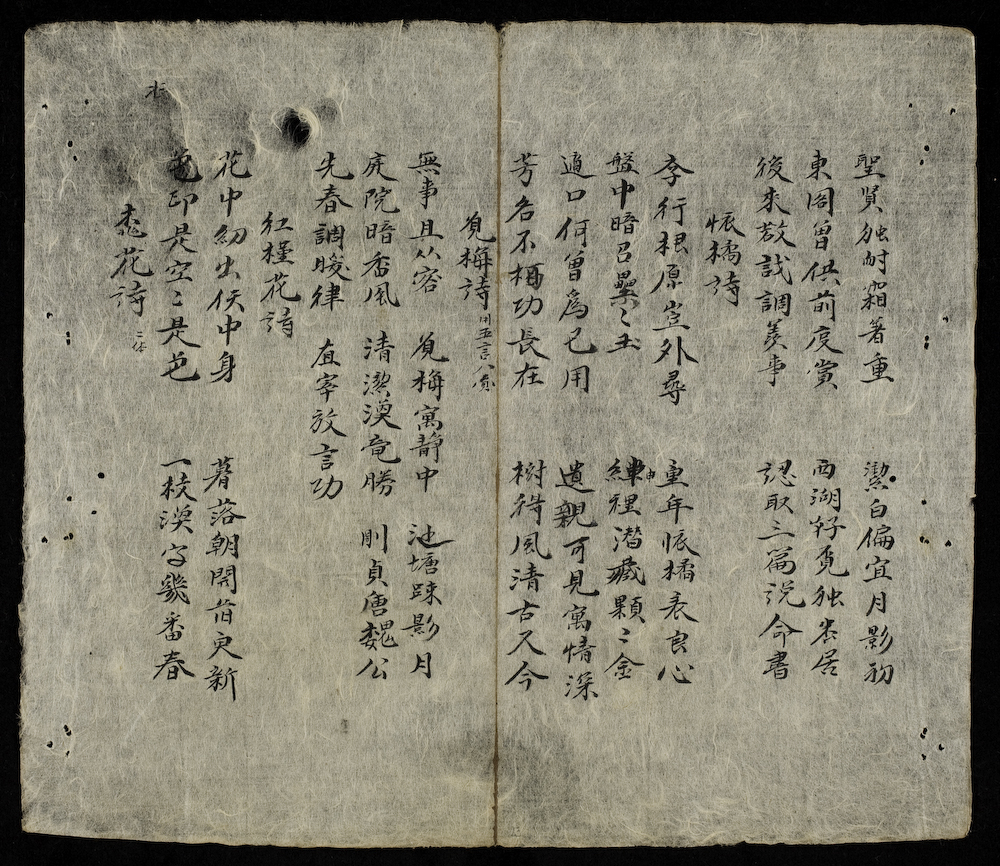 聖賢独耐霜著重 潔白偏宜月影初
東閣曾供前度賞 西湖好覓独岩居
後来敖試調羹事 認取三篇説命書
懐橘詩
孝行根原豈外尋 童年懐橘表良心
盤中暗召壘〻玉 裡潜藏顆〻金
適口何曾為己用 遺親可見寓情深
芳名不栖功長在 樹得風清古又今
覓梅詩 用五言八韻
無事且从容 覓梅寓靜中 池塘踈影月
庭院暗香風 清潔漠竜勝 剛貞唐魏公
先春調暖律 直宰放言功
紅槿花詩
花中紉出佞中身 暮落朝開旨更新
色即是空〻是色 一枝漠字幾番春
桃花詩 三体